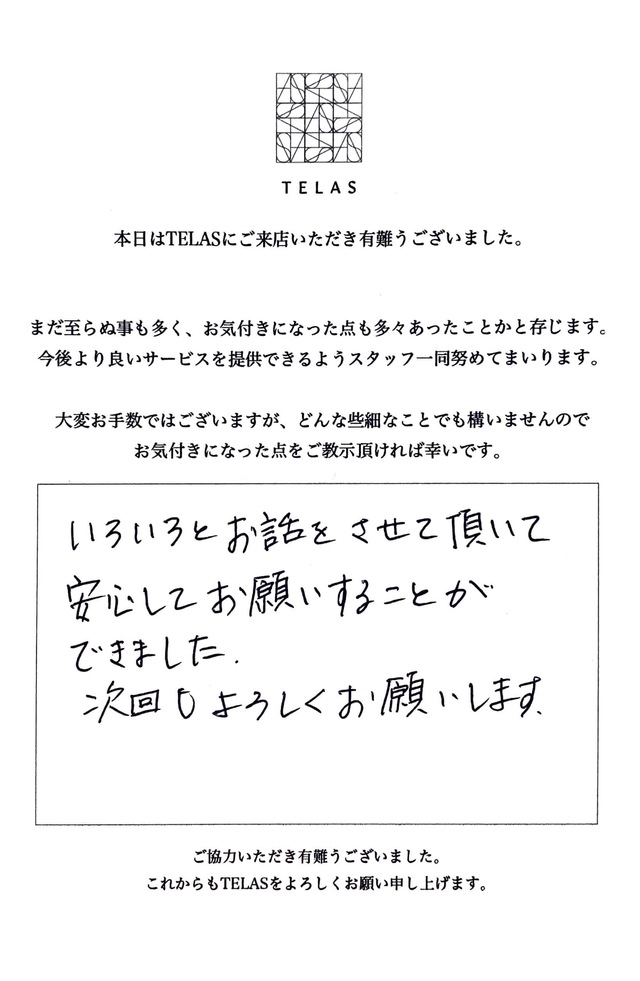 TELAS
本日はTELASにご来店いただき有難うございました。
まだ至らぬ事も多く、お気付きになった点も多々あったことかと存じます。
今後より良いサービスを提供できるようスタッフ一同努めてまいります。
大変お手数ではございますが、どんな些細なことでも構いませんので
お気付きになった点をご教示頂ければ幸いです。
いろいろとお話をさせて頂いて
安心してお願いすることが
できました.
次回もよろしくお願いします.
ご協力いただき有難うございました。
これからもTELASをよろしくお願い申し上げます。